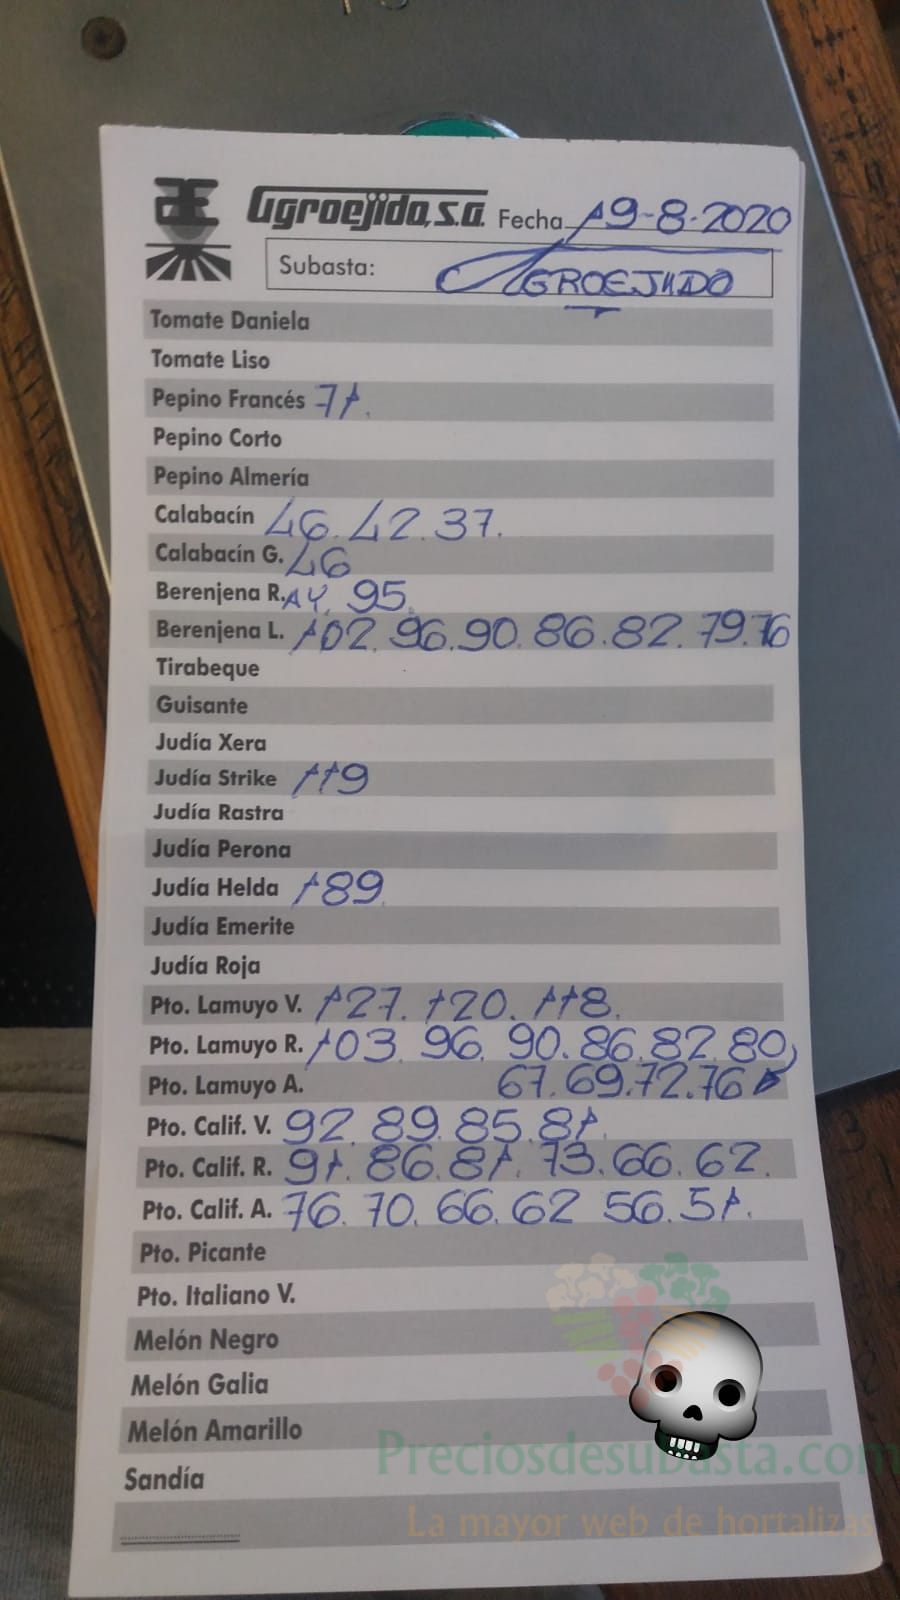 Agroejido, s.a. Fecha 19-8-2020
Subasta: AGROEJIDO
Tomate Daniela
Tomate Liso
Pepino Francés 71.
Pepino Corto
Pepino Almería
Calabacín 46. 42. 37.
Calabacín G. 46
Berenjena R. 95.
Berenjena L. 102. 96. 90. 86. 82. 79. 76
Tirabeque
Guisante
Judía Xera
Judía Strike 119
Judía Rastra
Judía Perona
Judía Helda 189
Judía Emerite
Judía Roja
Pto. Lamuyo V. 127. 120. 118.
Pto. Lamuyo R. 103. 96. 90. 86. 82. 80
Pto. Lamuyo A. 67. 69. 72. 76
Pto. Calif. V. 92. 89. 85. 81.
Pto. Calif. R. 91. 86. 81. 73. 66. 62.
Pto. Calif. A. 76. 70. 66. 62 56. 51.
Pto. Picante
Pto. Italiano V.
Melón Negro
Melón Galia
Melón Amarillo
Preciosdesubasta.com
Sandía
La mayor web de hortalizas